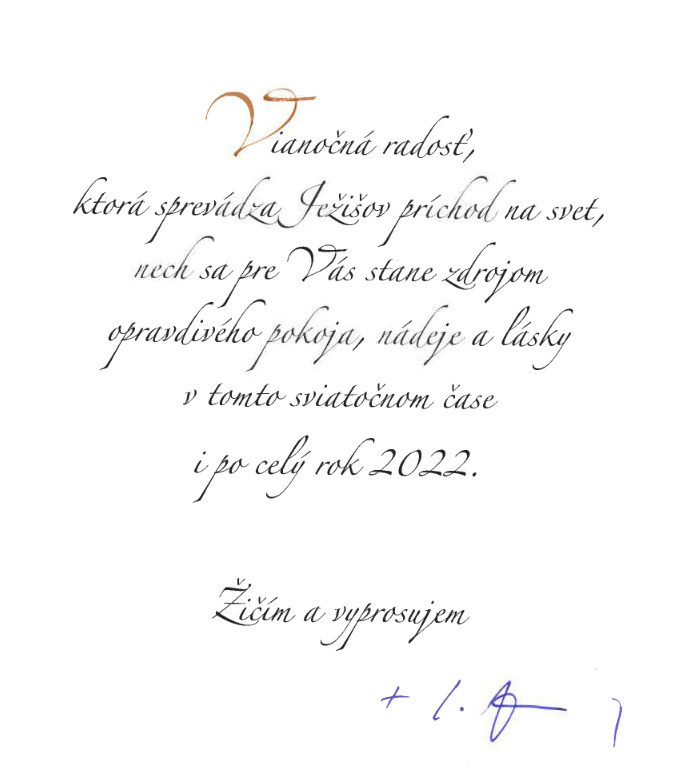 Vianočná radosť,
ktorá sprevádza Ježišov príchod na svet,
nech sa pre Vás stane zdrojom
opravdivého pokoja, nádeje a lásky
v tomto sviatočnom čase
i po celý rok 2022.
Žičím a vyprosujem